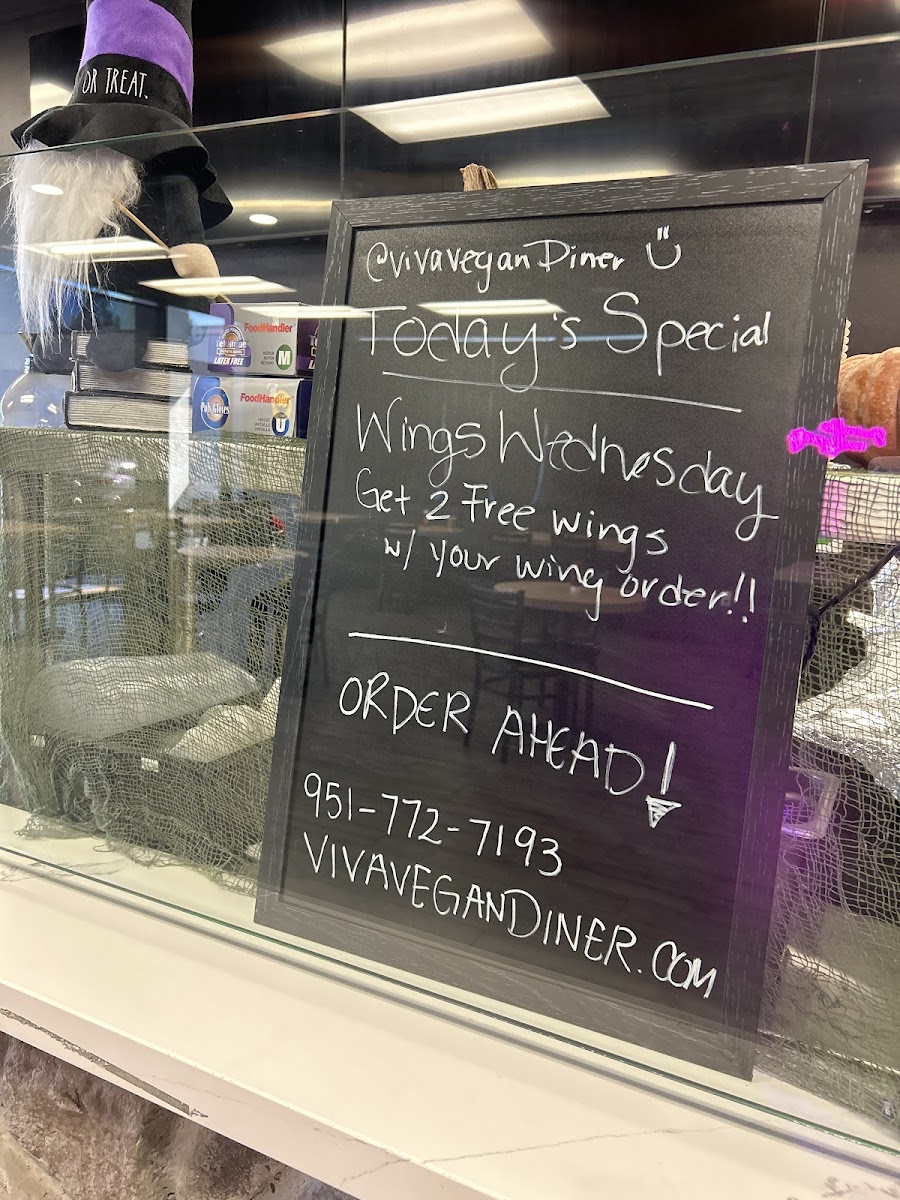 OR TREAT.
@vivaveganDiner
Today's Special
Wings Wednesday
Get 2 Free wings
w/ your wing order!!
ORDER AHEAD!
951-772-7193
VIVAVEGANDINER.COM
FoodHandler
LATEX FREE
M
FoodHandler
Poly Gloves
U